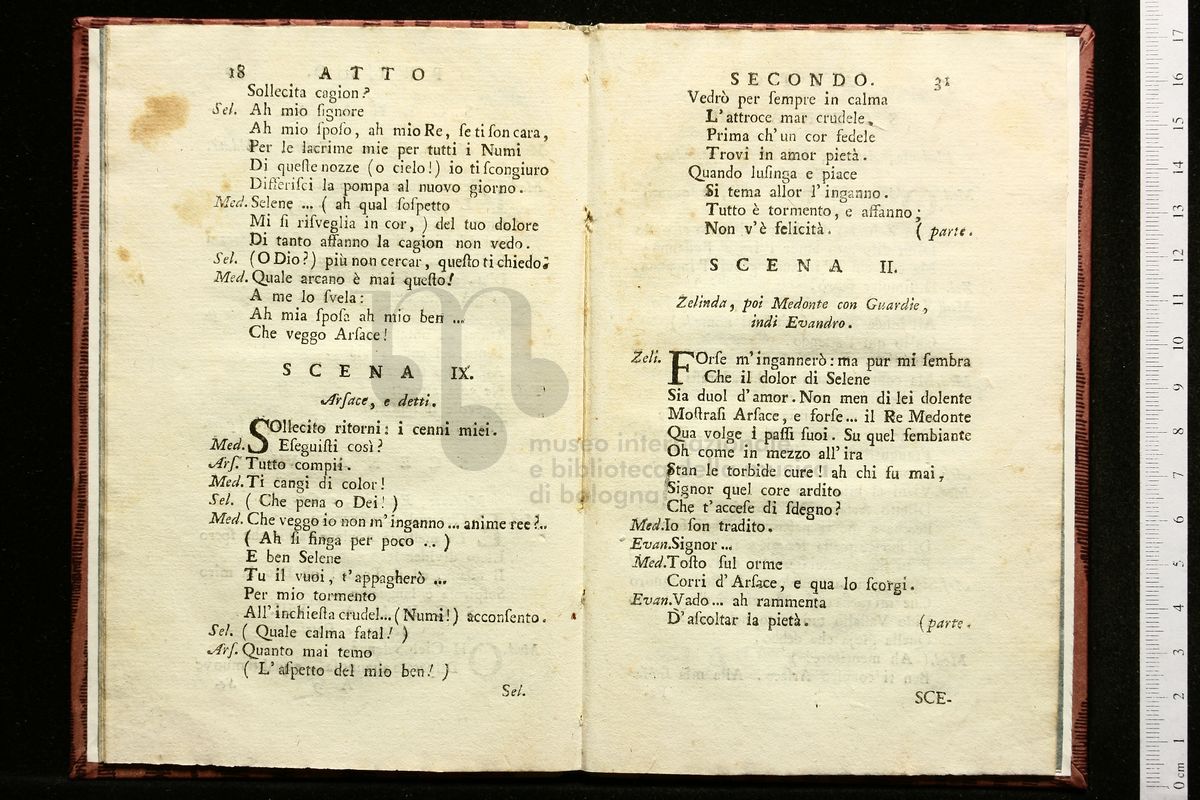 18 ATTO
Sollecita cagion?
Sel. Ah mio ſignore
Ah mio ſpoſo, ah mio Re, ſe ti ſon cara,
Per le lacrime mie per tutti i Numi
Di queſte nozze (o cielo!) io ti ſcongiuro
Differiſci la pompa al nuovo giorno.
Med. Selene ... ( ah qual ſoſpetto
Mi ſi riſveglia in cor, ) del tuo dolore
Di tanto affanno la cagion non vedo.
Sel. (O Dio?) più non cercar, queſto ti chiedo.
Med. Quale arcano è mai queſto!
A me lo ſvela:
Ah mia ſpoſa ah mio ben ...
Che veggo Arſace!
SCENA IX.
Arſace, e detti.
SOllecito ritorni: i cenni miei.
Med. Eſeguiſti così?
Arſ. Tutto compii.
Med. Ti cangi di color!
Sel. ( Che pena o Dei! )
Med. Che veggo io non m'inganno ... anime ree?..
( Ah ſi finga per poco .. )
E ben Selene
Tu il vuoi, t'appagherò ...
Per mio tormento
All'inchieſta crudel... (Numi!) acconſento.
Sel. ( Quale calma fatal! )
Arſ. Quanto mai temo
( L'aſpetto del mio ben! )
Sel.
SECONDO. 31
Vedrò per ſempre in calma
L'attroce mar crudele,
Prima ch'un cor fedele
Trovi in amor pietà.
Quando luſinga e piace
Si tema allor l'inganno.
Tutto è tormento, e affanno;
Non v'è felicità. ( parte.
SCENA II.
Zelinda, poi Medonte con Guardie,
indi Evandro.
Zeli. FOrſe m'ingannerò: ma pur mi ſembra
Che il dolor di Selene
Sia duol d'amor. Non men di lei dolente
Moſtraſi Arſace, e forſe... il Re Medonte
Qua volge i paſſi ſuoi. Su quel ſembiante
Oh come in mezzo all'ira
Stan le torbide cure! ah chi fu mai,
Signor quel core ardito
Che t'acceſe di ſdegno?
Med. Io ſon tradito.
Evan. Signor ...
Med. Toſto ſul orme
Corri d'Arſace, e qua lo ſcorgi.
Evan. Vado... ah rammenta
D'aſcoltar la pietà. (parte.
SCE-
museo internazionale
e biblioteca della musica
di bologna
0 cm 1 2 3 4 5 6 7 8 9 10 11 12 13 14 15 16 17